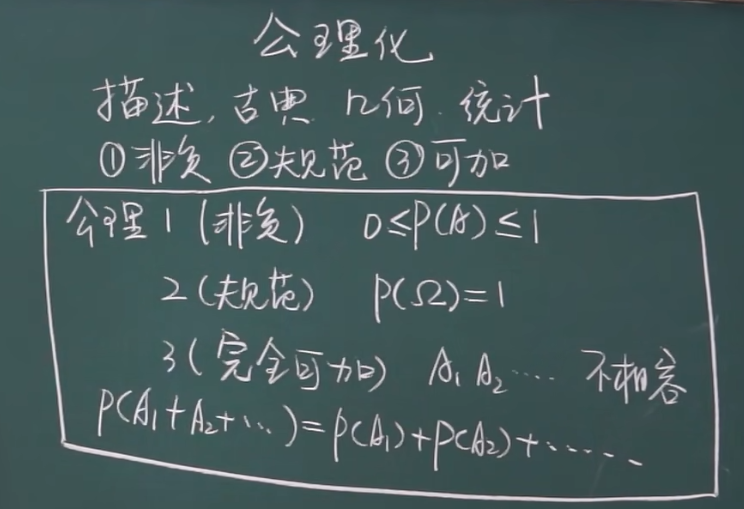 公理化
描述, 古典 几何. 统计
①非负 ②规范 ③可加
公理1 (非负) 0≤P(A)≤1
2 (规范) P(Ω)=1
3 (完全可加) A₁ A₂ ···· 不相容
P(A₁+A₂+···)=P(A₁)+P(A₂)+······